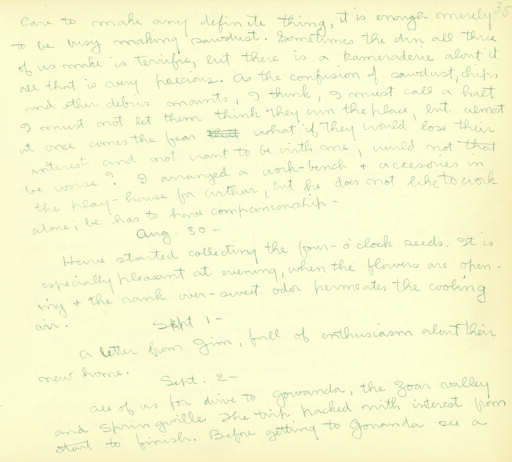 35
care to make any definite thing, it is enough merely
to be busy making sawdust. Sometimes the din all three
of us make is terrific, but there is a kameraderie about it
all that is very precious. As the confusion of sawdust, chips
and other debris mounts, I think, I must call a halt
I must not let them think they run the place, but almost
at once comes the fear what if they would lose their
interest and not want to be with me, would not that
be worse? I arranged a work-bench & accessories in
the play-house for Arthur, but he does not like to work
alone, he has to have companionship -
Aug. 30 -
Have started collecting the four-o'clock seeds. It is
especially pleasant at evening, when the flowers are open-
ing & the rank over-sweet odor permeates the cooling
air.
Sept 1 -
A letter from Jim, full of enthusiasm about their
new home.
Sept. 2 -
All of us for drive to Gowanda, the Zoar valley
and Springville. The trip packed with interest from
start to finish. Before getting to Gowanda see a